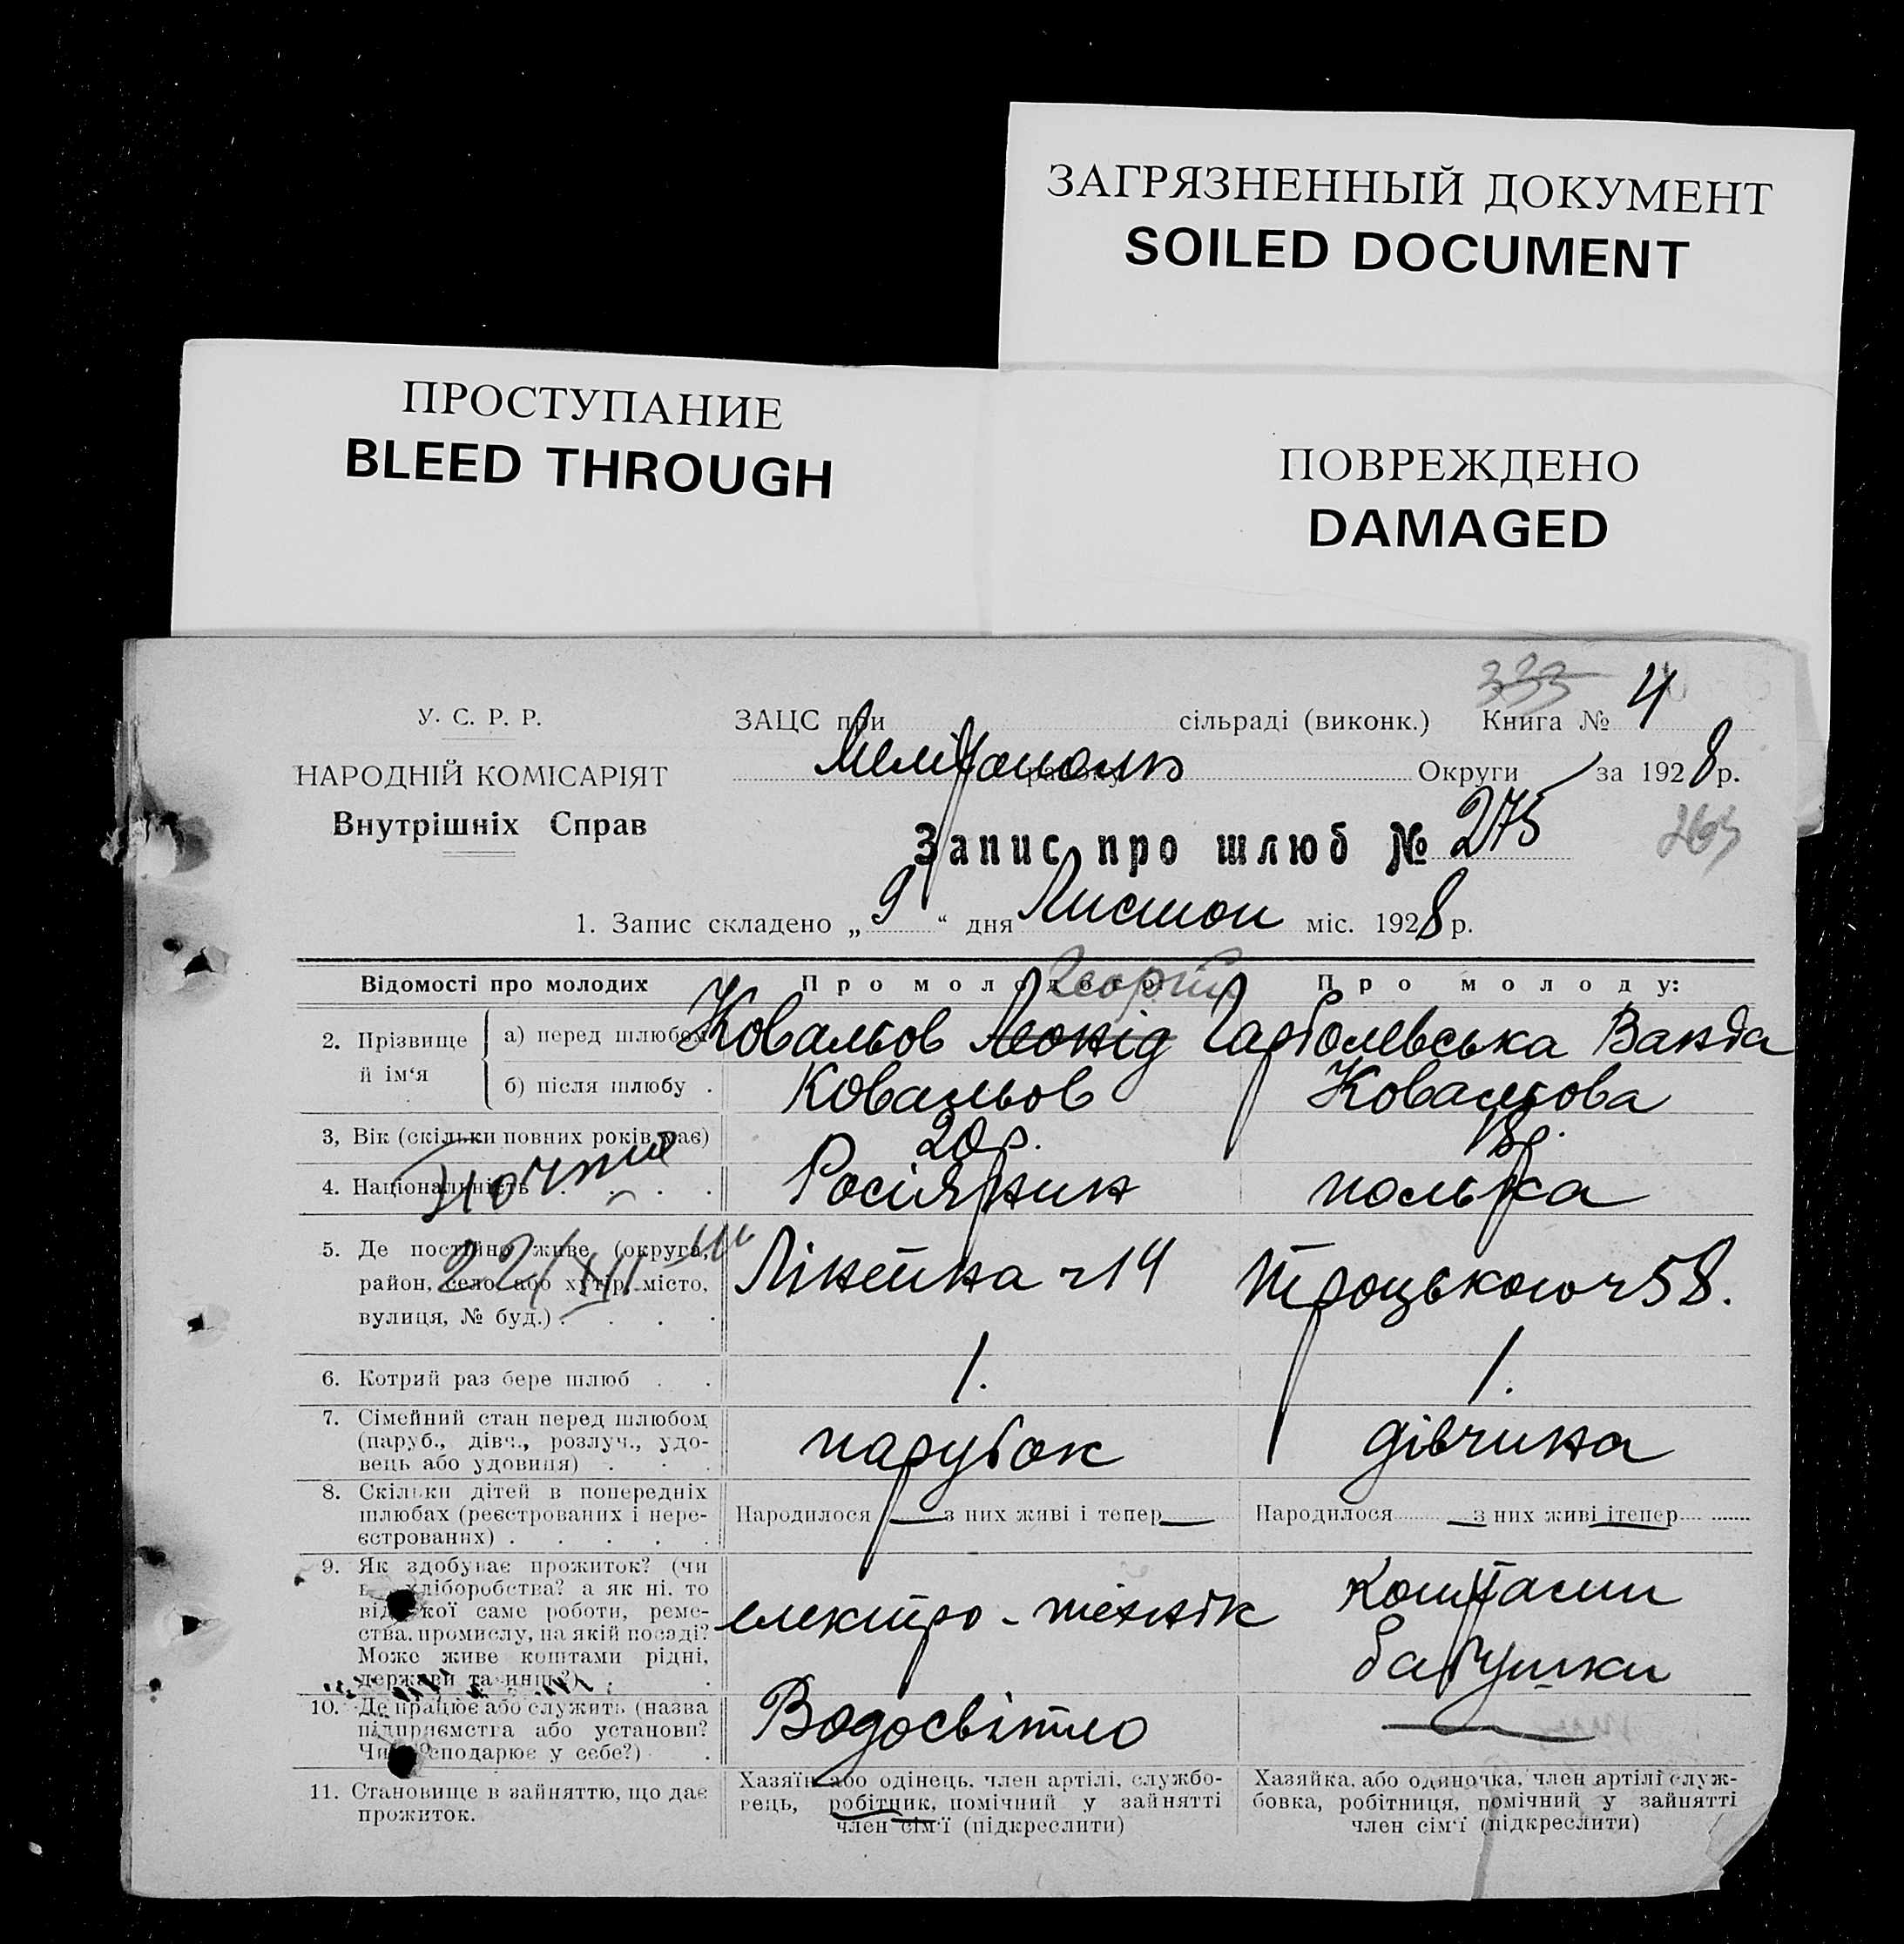 ЗАГРЯЗНЕННЫЙ ДОКУМЕНТ
SOILED DOCUMENT
ПРОСТУПАНИЕ
BLEED THROUGH
ПОВРЕЖДЕНО
DAMAGED
У. С. Р. Р.
НАРОДНІЙ КОМІСАРІЯТ
Внутрішніх Справ
333
ЗАЦС при сільраді (виконк.) Книга № 4
Мелітополь району Округи за 1928 р.
Запис про шлюб № 275
263
1. Запис складено „9“ дня Листоп міс. 1928 р.
Відомості про молодих Про молодого: Про молоду:
Георгій
2. Прізвище й ім‘я а) перед шлюбом Ковальов Леонід Ванда
б) після шлюбу . Ковальов Ковальова
3, Вік (скільки повних років має) 20 р. 18 р.
4. Національність . . . . Росіянин полька
5. Де постійно живе (округа,
район, село або хутір, місто,
вулиця, № буд.) . . . .
Лінейна ч 14 Троцького ч 58.
6. Котрий раз бере шлюб . . 1. 1.
7. Сімейний стан перед шлюбом
(паруб., дівч., розлуч., удо-
вець або удовиця) . . .
парубок дівчина
8. Скільки дітей в попередніх
шлюбах (реєстрованих і нере-
єстрованих) . . . . .
Народилося — з них живі і тепер — Народилося — з них живі ітепер —
9. Як здобуває прожиток? (чи
хліборобства? а як ні. то
від якої саме роботи, реме-
ства, промислу, на якій посаді?
Може живе коштами рідні,
держави та инш?) .
електро-технік
Коштами
батушки
10. Де працює або служить (назва
підприємства або установи?
Чи господарює у себе?) .
Водосвітло —
11. Становище в зайняттю, що дає
прожиток.
Хазяїн або одінець, член артілі, службо-
вець, робітник, помічний у зайнятті
член сім‘ї (підкреслити)
Хазяйка, або одиночка, член артілі служ-
бовка, робітниця, помічний у зайнятті
член сім‘ї (підкреслити)